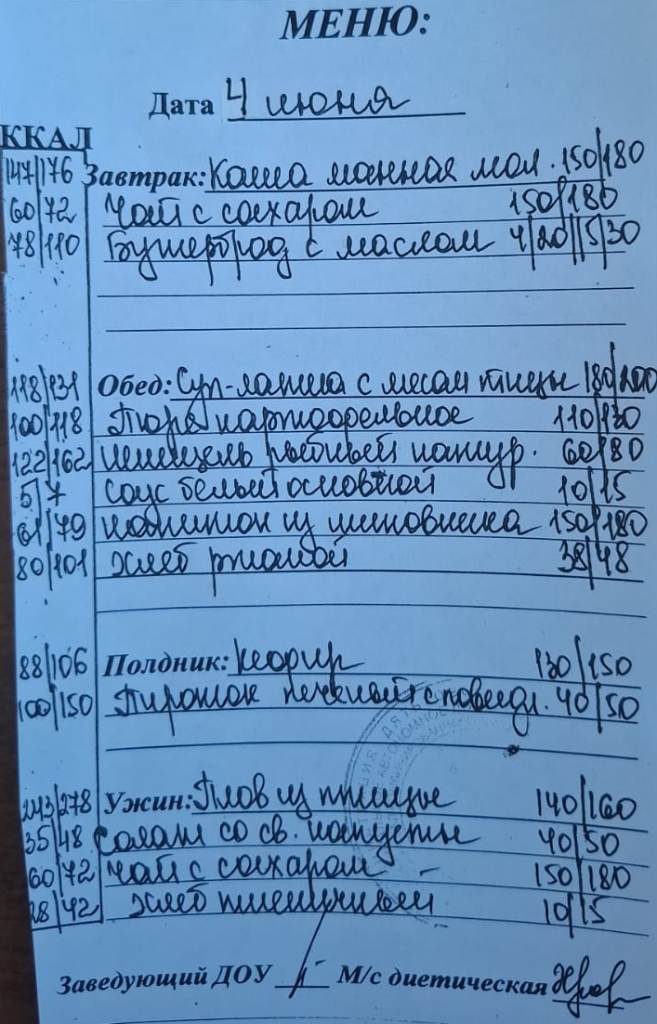 МЕНЮ:
Дата 4 июня
ККАЛ
147/176 Завтрак: Каша манная мол. 150/180
60/72 Чай с сахаром 150/180
78/110 Бутерброд с маслом 4/20//5/30
118/131 Обед: Суп-лапша с мясом птицы 180/200
100/118 Пюре картофельное 110/130
122/162 шницель рыбный натур. 60/80
5/7 соус белый основной 10/15
61/79 напиток из шиповника 150/180
80/101 хлеб ржаной 38/48
88/106 Полдник: Кефир 130/150
100/150 Пирожок печеный с повидл. 40/50
243/278 Ужин: Плов из птицы 140/160
35/48 Салат со св. капусты 40/50
60/72 Чай с сахаром - 150/180
28/42 Хлеб пшеничный 10/15
Заведующий ДОУ М/с диетическая